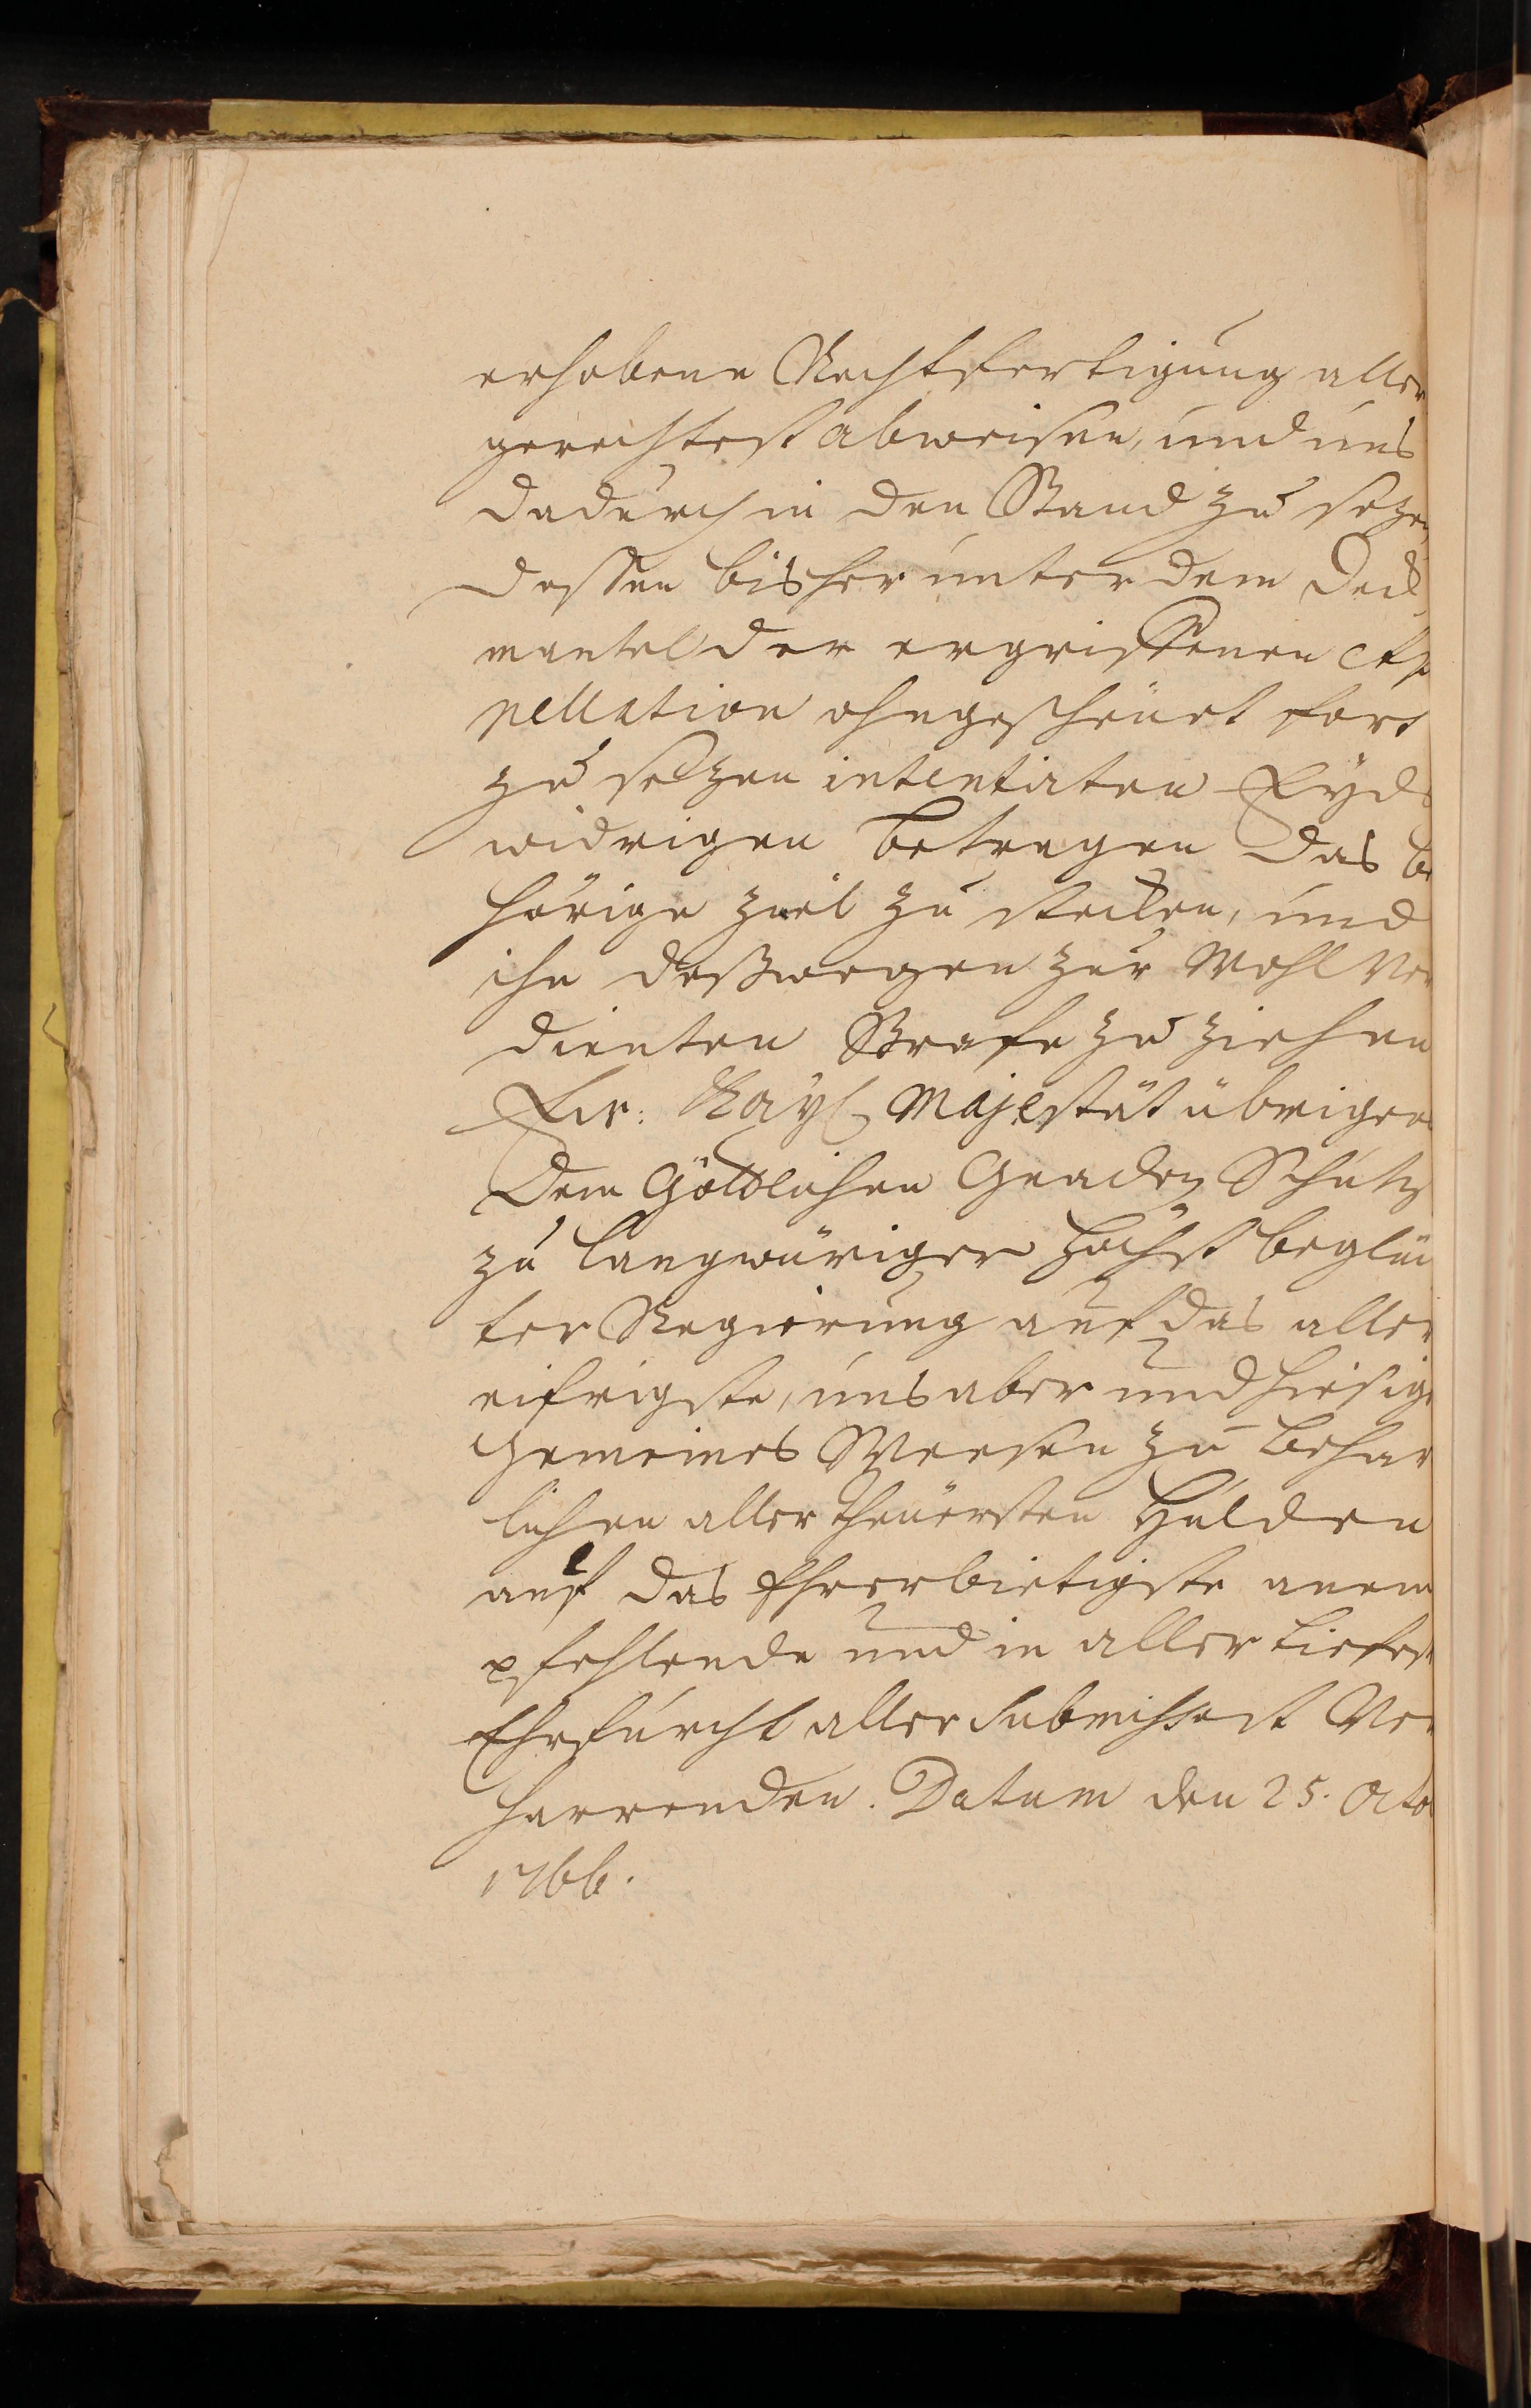 erhobene Rechtfertigung aller
gerechtest abweisen, und uns
dadurch in den Stand zu sezen
dessen bisher unter dem Deck
mantel der ergriffenen Ap
pellation ohngescheuet fort
zu sezen intentirten Eyds
widrigen betragen das be
hörige Ziel zu stecken, und
ihn deßwegen zur Wohl Ver
dienten Strafe zu ziehen
Ew: Kayl Majestät übrigens
Dem Göttlichen Gnaden Schutz
zu langwüriger höchst beglück
ter Regierung auf das aller
eifrigste, uns aber und hiesige
Gemeines Weesen zu behar
lichen aller theuersten Hulden
auf das Ehrerbietigste anem
pfehlende und in aller tiefest
Ehrfurcht aller submissest Ver
harrenden. Datum den 25. Octo
1766.